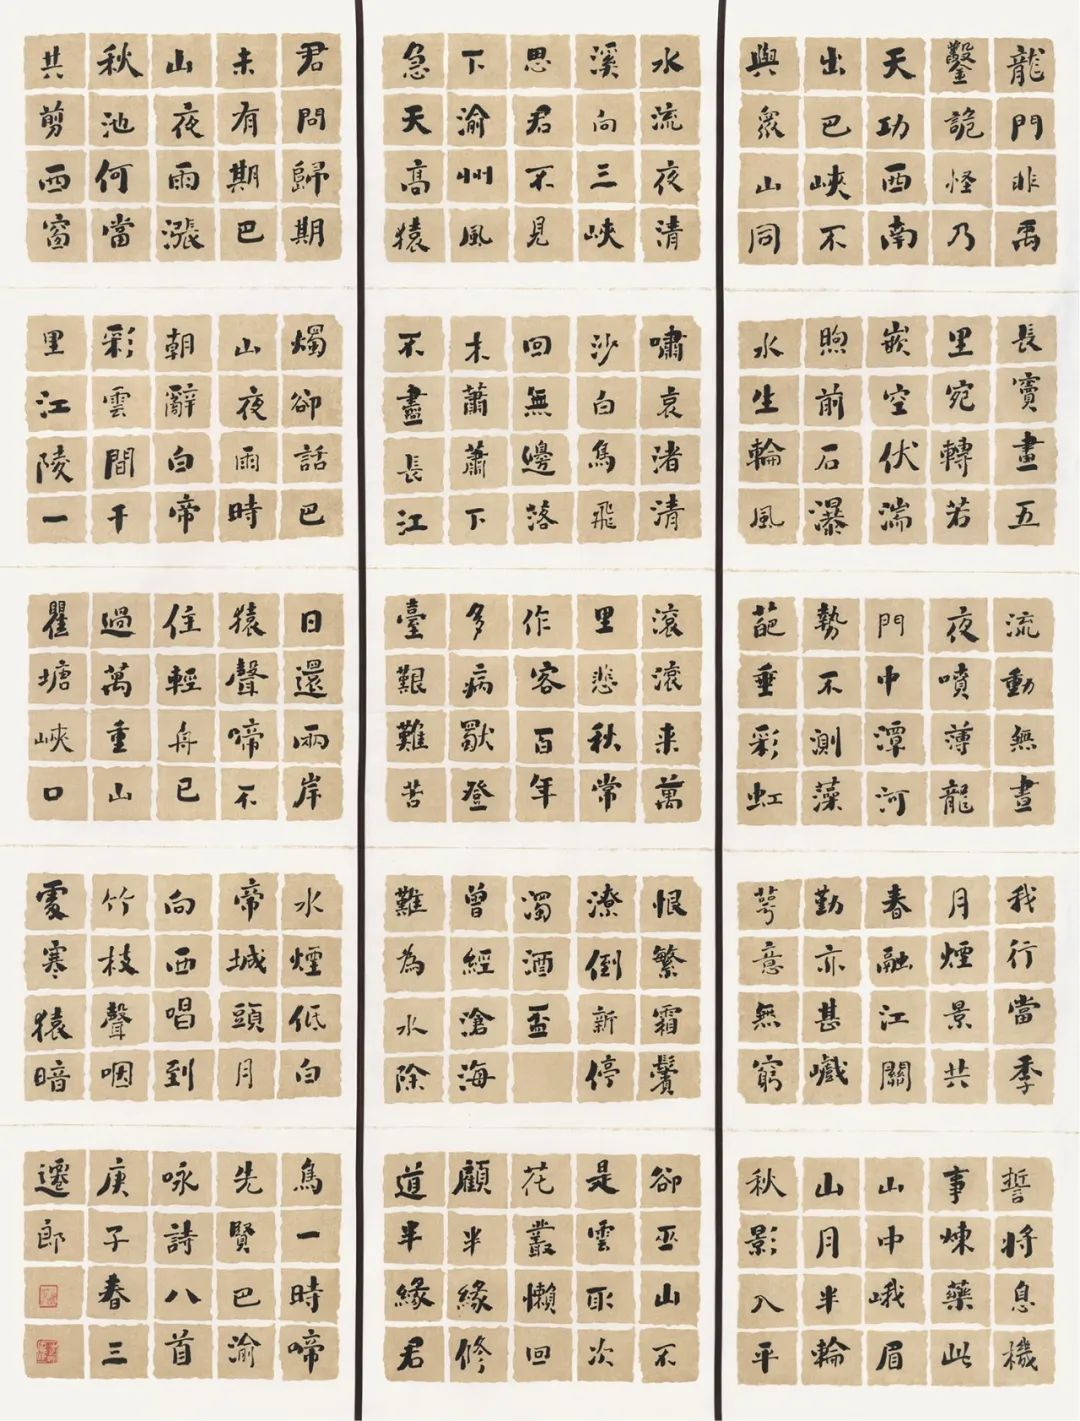 龍門非禹
鑿詭怪乃
天功西南
出巴峽不
與衆山同
長竇畫五
里宛轉若
嵌空伏湍
煦前石瀑
水生輪風
流動無晝
夜噴薄龍
門中潭河
勢不測藻
葩垂彩虹
我行當季
月煙景共
春融江關
勤亦甚巇
萼意無窮
誓將息機
事煉藥此
山中峨眉
山月半輪
秋影入平
水流夜清
溪向三峽
思君不見
下渝州風
急天高猿
嘯哀渚清
沙白鳥飛
回無邊落
木蕭蕭下
不盡長江
滾滾来萬
里悲秋常
作客百年
多病獨登
臺艱難苦
恨繁霜鬢
潦倒新停
濁酒盃
曾經滄海
難為水除
卻巫山不
是雲取次
花叢懶回
顧半緣修
道半緣君
君問歸期
未有期巴
山夜雨漲
秋池何當
共剪西窗
燭卻話巴
山夜雨時
朝辭白帝
彩雲間千
里江陵一
日還兩岸
猿聲啼不
住輕舟已
過萬重山
瞿塘峽口
水煙低白
帝城頭月
向西唱到
竹枝聲咽
處寒猿暗
鳥一時啼
先賢巴渝
咏詩八首
庚子春三
遷郎